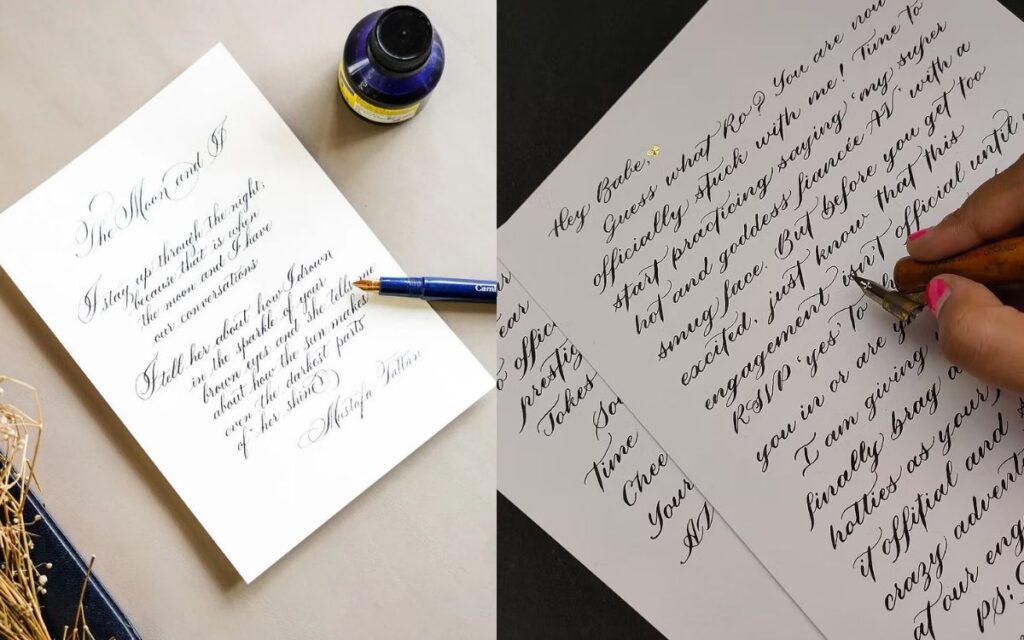 The Moon and I
I stay up through the night,
because that is when
the moon and I have
our conversations
I tell her about how I drown
in the sparkle of your
brown eyes and she tells me
about how the sun makes
even the darkest parts
of her shine
Mustafa
Cam
Hey Babe,
Guess what Ro? You are now
officially stuck with me! Time to
start practicing saying 'my super
hot and goddess fiancée AV' with a
smug face. But before you get too
excited, just know that this
engagement isn't official until
RSVP 'yes' to
you in or are you
I am giving
finally brag a
hotties as your
it offifial and
crazy advent
at our eng
PS:
ear
offic
prestig
Tokes
So
Time
Chee
Your